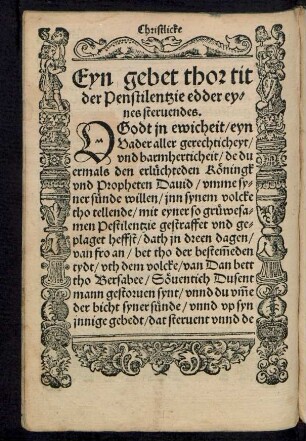 Christlicke
Eyn gebet thor tit
der Penstilentzie edder ey⸗
nes steruendes.
O Godt jn ewicheit/eyn
Vader aller gerechticheyt/
vnd barmherticheit/de du
ermals den erlüchteden Köningk
vnd Propheten Dauid/vmme sy⸗
ner sünde willen/jnn synem volcke
tho tellende/mit eyner so grüwesa⸗
men Pestilentzie gestraffet vnd ge⸗
plaget heffst/dath jn dreen dagen/
van fro an/bet tho der bestemeden
tydt/vth dem volcke/van Dan bett
tho Bersabee/Söuentich Dusent
mann gestoruen synt/vnnd du vm̄e
der bicht syner sünde/vnnd vp syn
jnnige gebedt/dat steruent vnnd de